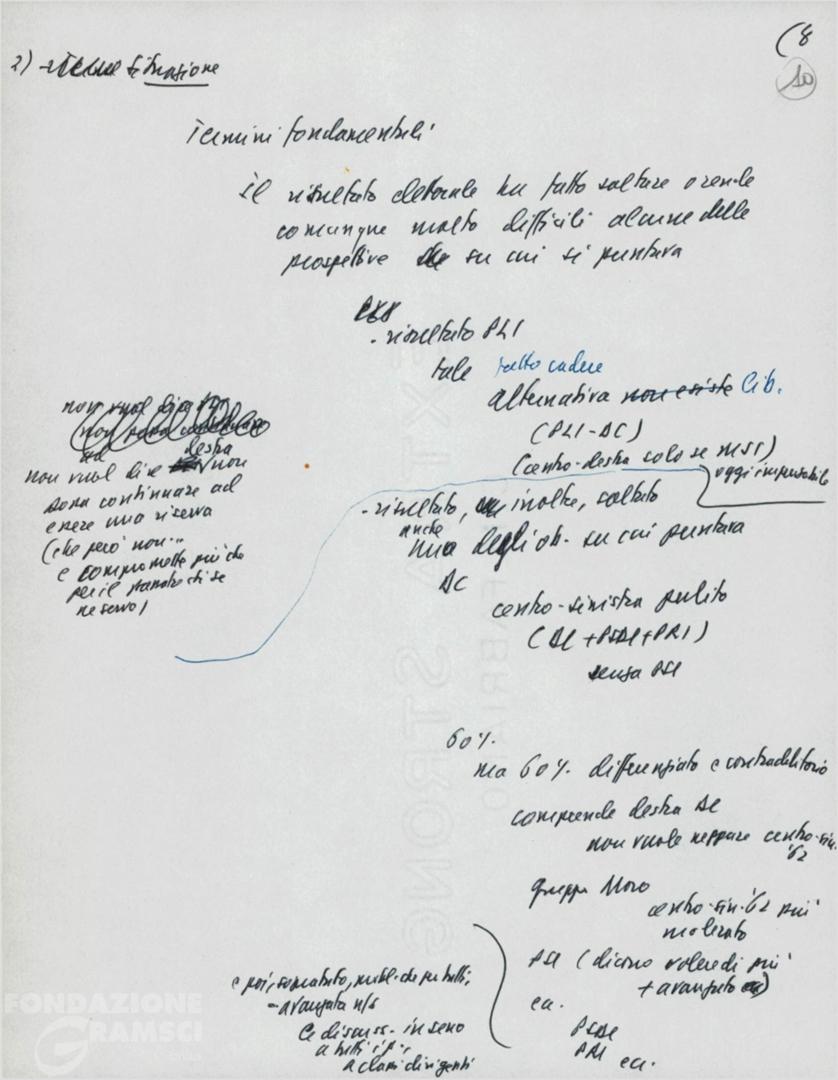 (8
10
2) situazione
Termini fondamentali
il risultato elettorale ha fatto saltare o rende
comunque molto difficili alcune delle
prospettive su cui si puntava
- risultato PLI
tale fatto cadere
alternativa non esiste lib.
(PLI-DC)
(centro-destra solo se MSI)
oggi impensabile
non vuol dire
destra
non vuol dire non
possa continuare ad
essere una riserva
(che però non...
e compromette più che
per il
riserva)
- risultato, inoltre, saltato
anche
uno degli ob. su cui puntava
DC
centro-sinistra pulito
(DC + PSDI + PRI)
senza PSI
60%.
ma 60% differenziato e contradditorio
comprende destra DC
non vuole neppure centro-sin.
'62
gruppo Moro
centro-sin. '62 più
moderato
PSI (dicono volere di più
+ avanzato)
ecc.
PSDI
PRI ecc.
e poi, soprattutto, per tutti,
- avanzata n/s
e discuss. in seno
a tutti i p.,
a classi dirigenti
FONDAZIONE
GRAMSCI